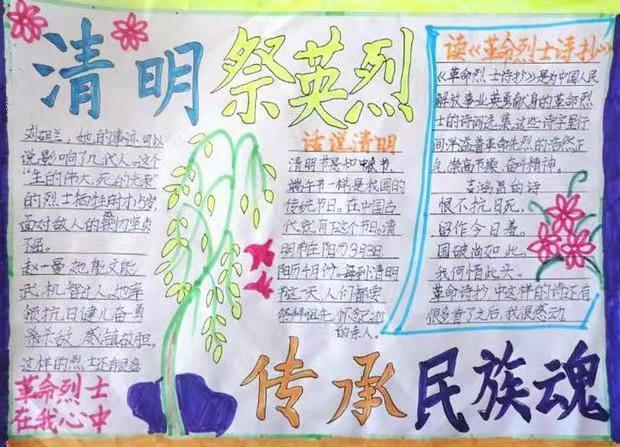 清明祭英烈
刘胡兰,她的事迹可以
说影响了几代人。这个
“生的伟大,死的光荣”
的烈士牺牲时才15岁,
面对敌人的
不屈。
赵一曼她能文能
武,机智过人。她率
领抗日健儿奋勇
杀敌,威镇敌胆。
这样的烈士还有很多
革命烈士
在我心中
话说清明
清明节是和春节、
端午节一样是我国的
传统节日。在中国古
代就有了这个节日。清
明在阳历3月3日
阳历4月份。每到清明
节这一天,人们都要
祭拜祖先 怀念逝
的亲人。
读《革命烈士诗抄》
《革命烈士诗抄》是为中国人民
解放事业英勇献身的革命烈
士的诗词选集,这些诗字里行
间洋溢着革命先烈的浩然正
气、崇高节操、奋斗精神。
吉鸿昌的诗
恨不抗日死,
留作今日羞。
国破尚如此,
我何惜此头。
革命诗抄中这样的诗还有
很多看了之后,我很感动
传承民族魂